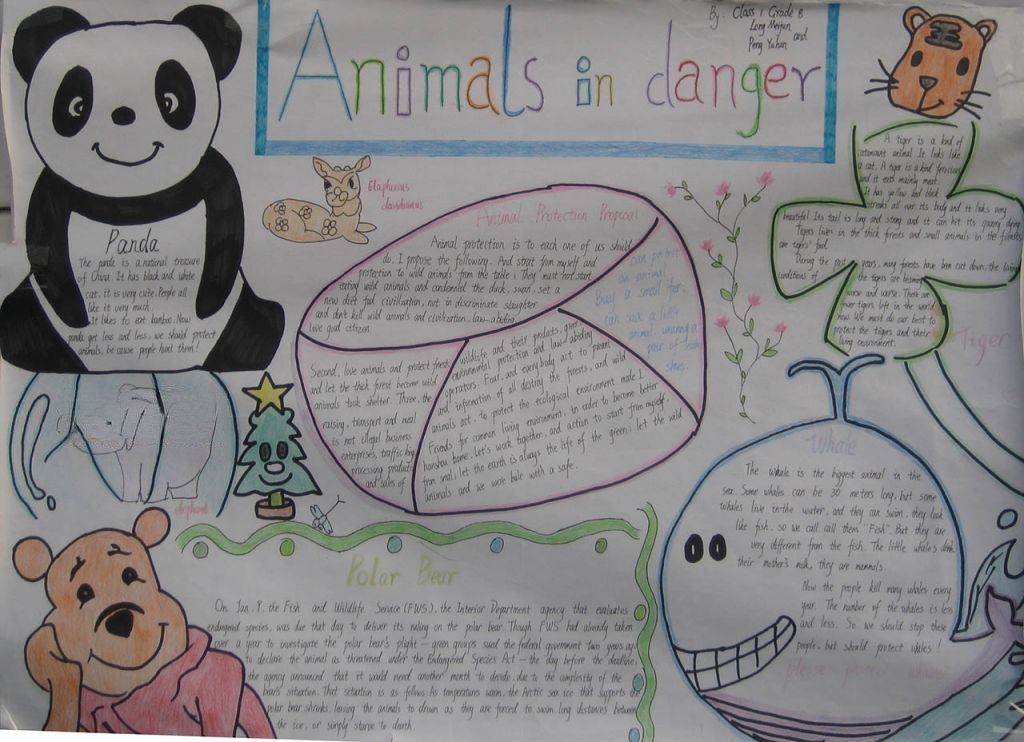 Animals in danger
By: Class 1 Grade 8
Long Meijun
and
Peng Yuhan
Panda
The panda is a national treasure
of China. It has black and white
cat. it is very cute. People all
like it very much
It likes to eat bamboo. Now
panda get less and less. we should protect
animals, be cause people hunt them!
Elaphurus
davidianus
Animal Protection Proposal
Animal protection is to each one of us should
do. I propose the following. And strat from myself and
protection to wild animals from the table: They must not start
eating wild animals and condemned the duck, swan, set a
new diet fad civilization, not in discriminate slaughter
and don't kill wild animals and civilization, law-abiding,
love goal citizen
can protect
an animal
Buy a small fur
can save a little
animal, wearing a
pair of
shoes.
Second, love animals and protect forest
and let the thick forest become wild
animals took shelter. Three, the
raising, transport and meal
is not illegal business
enterprises, traffic big
processing products
and sales of
wildlife and their products, given
environmental protection and law-abiding
operators. Four, and every body act to prevent
and information of all destroy the forests, and wild
animals act, to protect the ecological environment make I
Friends for common living environment, in order to become better
hanshou home. Let's work together, and action to start from myself,
from small, let the earth is always the life of the green; let the wild
animals and we were bule with a safe.
A tiger is a kind of
catamount animal. It looks like
a cat. A tiger is a kind ferocious
and it eats mainly meat.
It has yellow bod black
streaks all over its body and it looks very
beautiful. Its tail is long and strong and it can hit its quarry dying.
Tigers lives in the thick forests and small animals in the forests
are tigers' food.
During the past years, many forests have been cut down, the living
conditions of the tigers are becoming
worse and worse. There are
fewer tigers left in the world
now. We must do our best to
protect the tigers and their
living environment.
Tiger
elephant
Whale
The whale is the biggest animal in the
sea. Some whales can be 30 meters long, but some
whales live in the water, and they can swim, they look
like fish. so we call call them "Fish". But they are
very different from the fish. The little whales drink
their mother's milk, they are mammals.
Now the people kill many whales every
year. The number of the whales is less
and less. So we should stop these
people, but should protect whales!
please protect
Polar Bear
On Jan. 9. the Fish and Wildlife Service (FWS), the Interior Department agency that evaluates
endangered species, was due that day to deliver its ruling on the polar bear. Though FWS had already taken
over a year to investigate the polar bear's plight — green groups sued the federal government two years ago
to declare the animal as threatened under the Endangered Species Act — the day before the deadline,
the agency announced that it would need another month to decide, due to the complexity of the
bear's situation. That situation is as follows: As temperatures warm, the Arctic sea ice that supports the
polar bear shrinks, leaving the animals to drown as they are forced to swim long distances between
the ice, or simply starve to death.